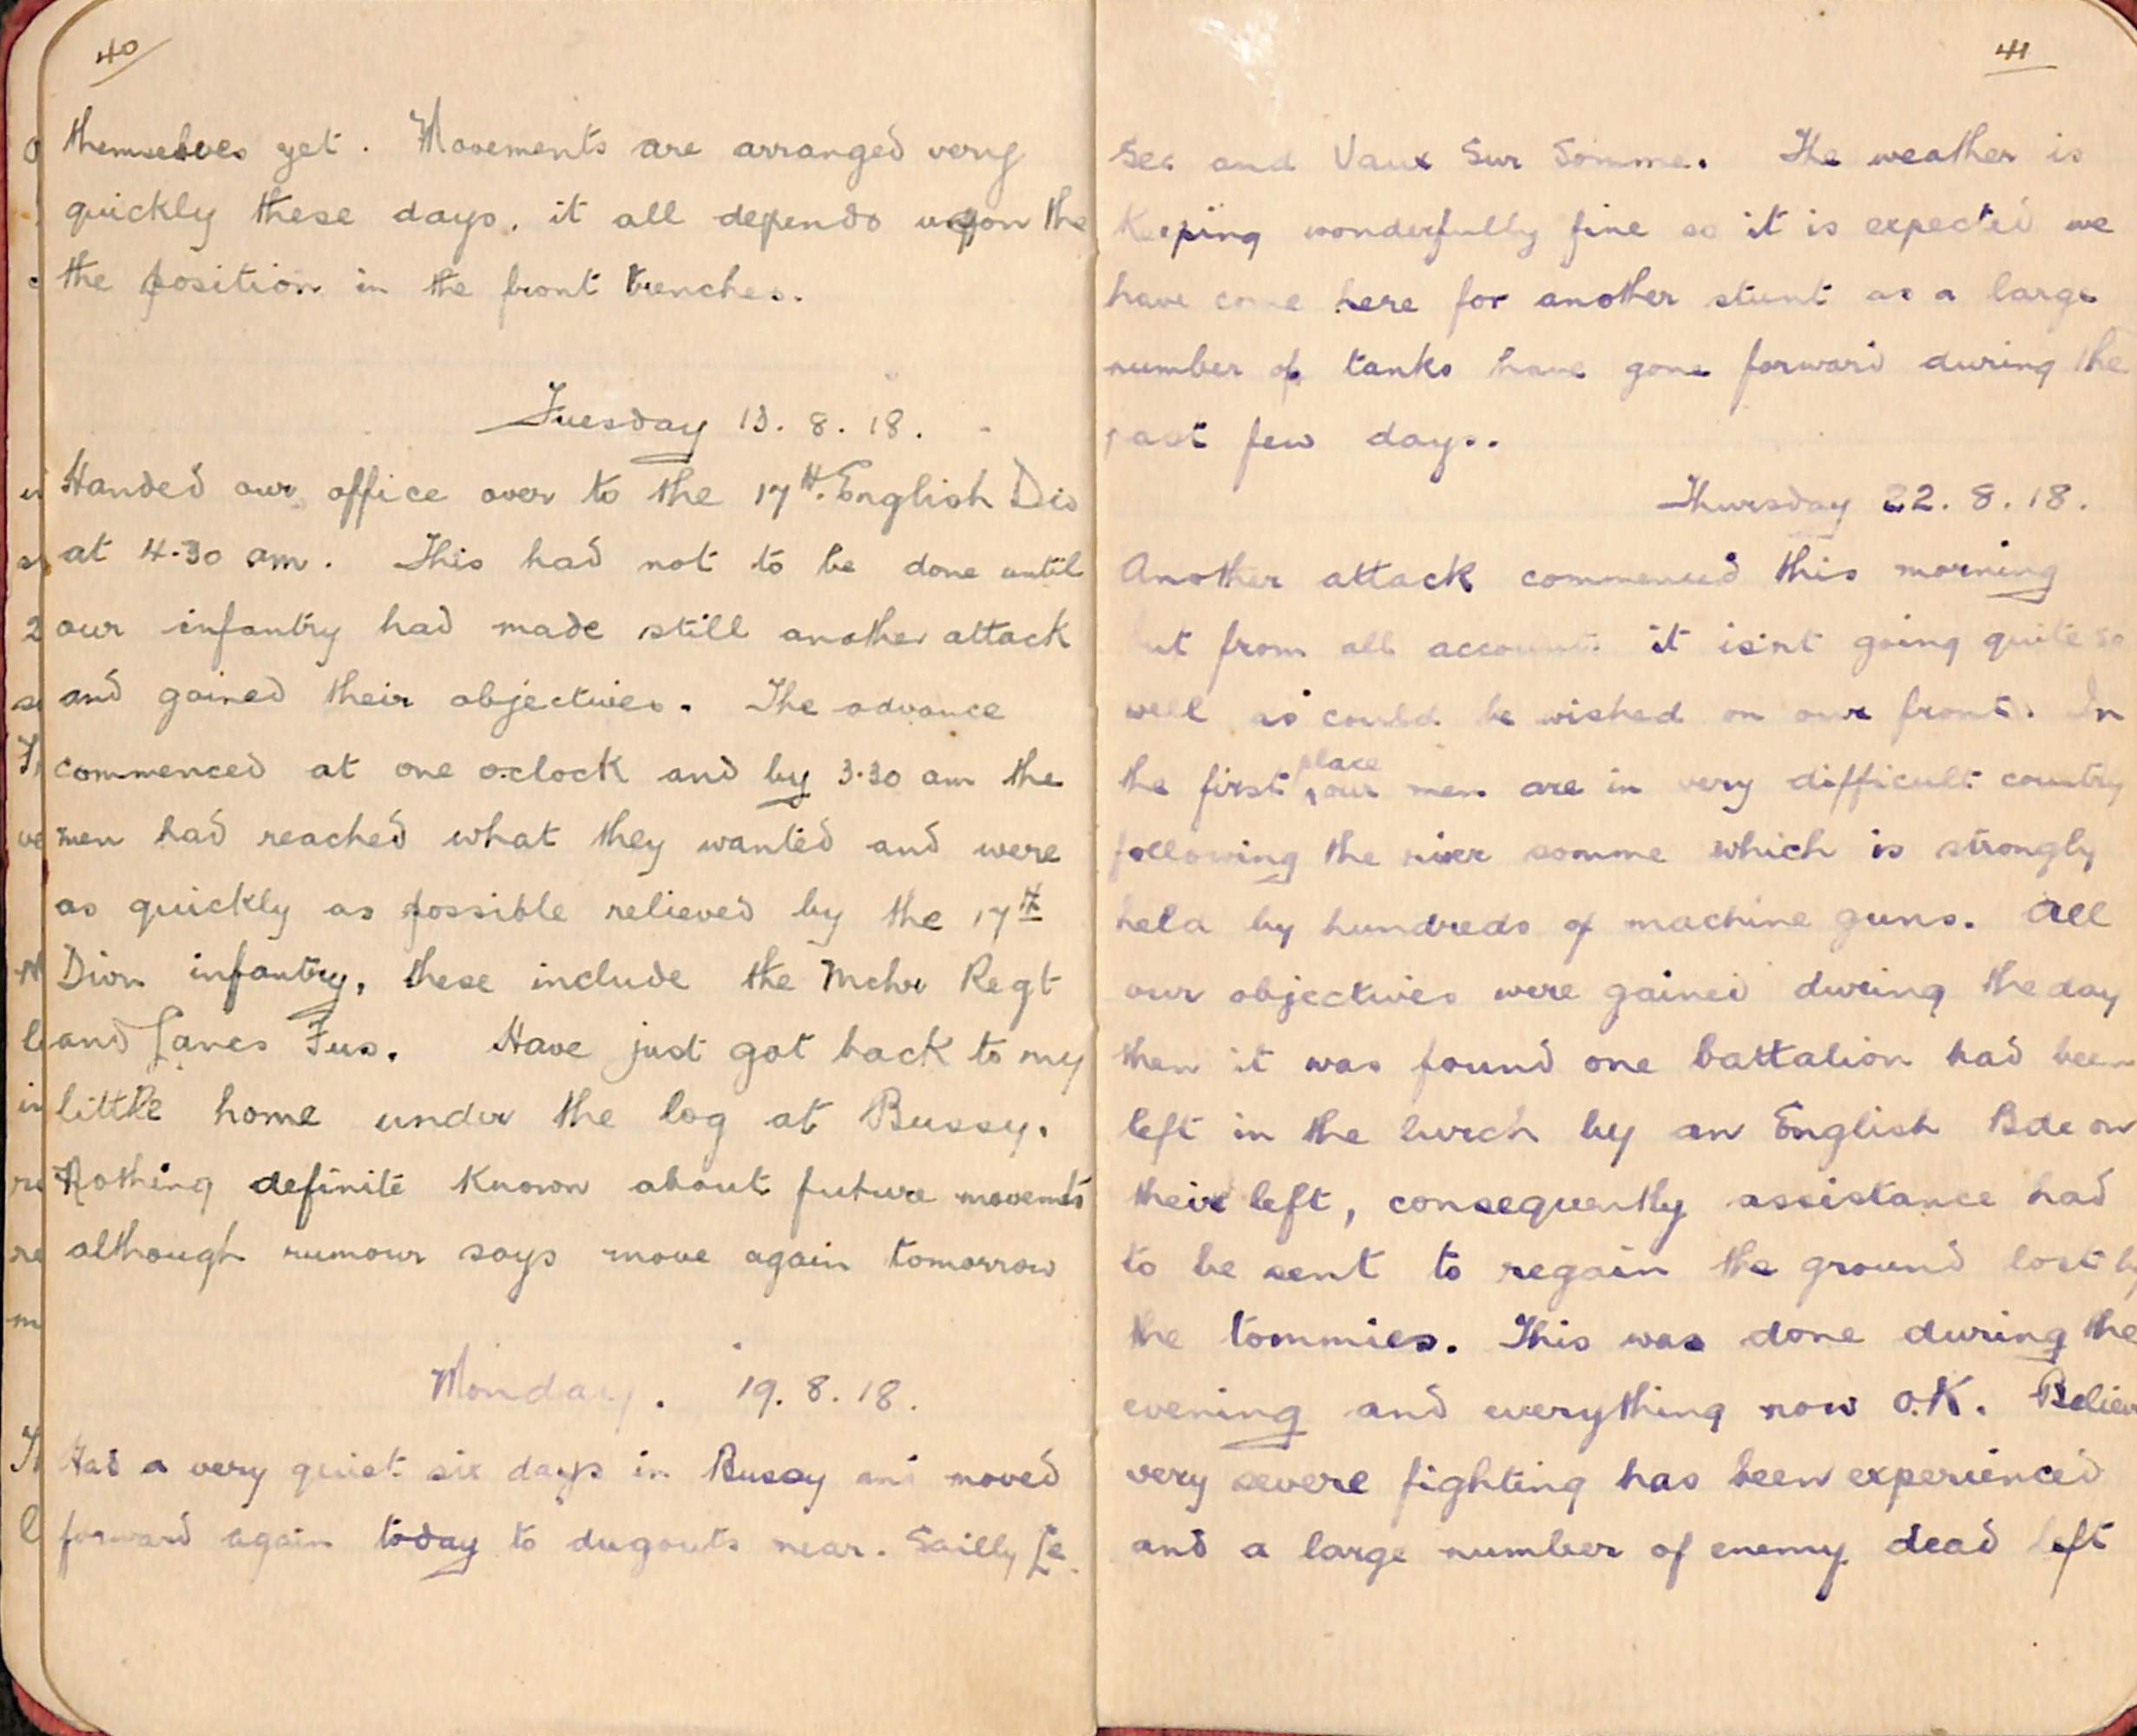 40
themselves yet. Movements are arranged very
quickly these days, it all depends upon the
the position in the front trenches.
Tuesday 13.8.18.
Handed our office over to the 17th. English Div
at 4.30 am. This had not to be done until
our infantry had made still another attack
and gained their objectives. The advance
commenced at one o.clock and by 3.30 am the
men had reached what they wanted and were
as quickly as possible relieved by the 17th
Divn infantry, these include the Mchr Regt
and Lancs Fus. Have just got back to my
little home under the log at Bussy.
Nothing definite known about future movemts
although rumour says move again tomorrow
Monday. 19.8.18.
Had a very quiet six days in Bussy and moved
forward again today to dugouts near. Sailly Le
41
Sec and Vaux Sur Somme. The weather is
keeping wonderfully fine so it is expected we
have come here for another stunt as a large
number of tanks have gone forward during the
past few days.
Thursday 22.8.18.
Another attack commenced this morning
but from all accounts it isn't going quite so
well as could be wished on our front. In
the first place our men are in very difficult country
following the river somme which is strongly
held by hundreds of machine guns. All
our objectives were gained during the day
then it was found one battalion had been
left in the lurch by an English Bde on
their left, consequently assistance had
to be sent to regain the ground lost by
the tommies. This was done during the
evening and everything now O.K. Believe
very severe fighting has been experienced
and a large number of enemy dead left